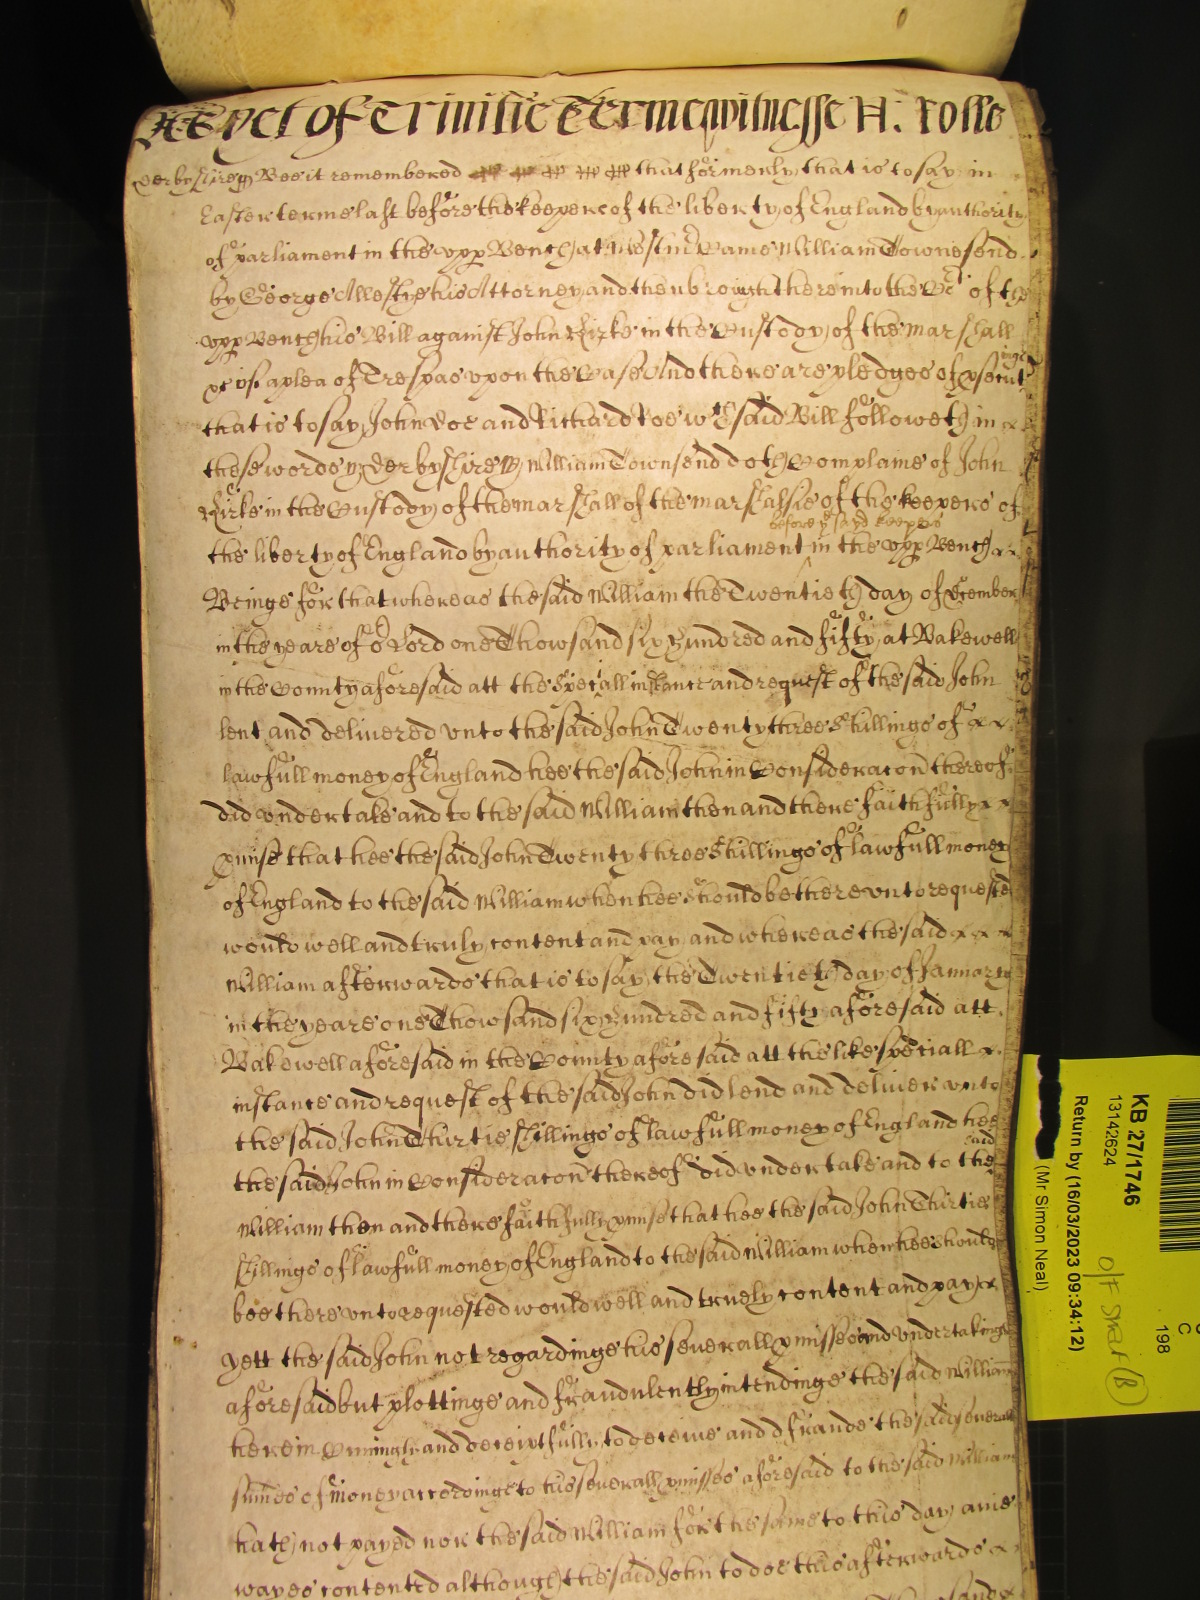 As yet of Trinitie Terme witnesse H: Rolle
Derbyshire ss Bee it remembered that formerly that is to say in
Easter terme last before the keepers of the liberty of England by authority
of parliament in the upp Bench at Westmr Came William Townesend
by George Allestrye his Attorney and then brought here into the Ct of the
upp Bench his Bill against John Kirke in the Custody of the marshall
&c of a plea of Trespas upon the Case And there are pledges of psecutinge
that is to say John Doe and Richard Roe wch said Bill followeth in x
these words ss Derbyshire ss William Townsend doth Complaine of John
Kirke in the Custody of the marshall of the marshalsie of the keepers of
before ye sayd keepers
the liberty of England by authority of parliament in the upp Bench x x
Beinge for that whereas the said William the Twentieth day of December
in the yeare of or Lord one Thowsand six Hundred and fifty at Bakewell
in the County aforesaid att the Speciall instance and request of the said John
lent and delivered unto the said John Twenty three Shillings of x x
lawfull money of England hee the said John in Consideracon thereof
did undertake and to the said William then and there faithfully x x
pmise that hee the said John Twenty three Shillings of lawfull money
of England to the said William when hee should be thereunto requested
would well and truly content and pay and whereas the said x x x
William afterwards that is to say the Twentieth day of January
in the yeare one Thowsand six Hundred and fifty aforesaid att
Bakewell aforesaid in the County aforesaid att the like speciall x
instance and request of the said John did lend and deliver unto
the said John Thirtie shillings of lawfull money of England hee
said
the said John in Consideracon thereof did undertake and to the
William then and there faithfully pmise that hee the said John Thirtie
shillings of lawfull money of England to the said William when hee should
bee thereunto requested would well and truely content and pay x
yett the said John not regardinge his severall pmisses and undertakings
aforesaid but plottinge and fraudulently intendinge the said William
herein Cuningly and deceiptfully to deceive and dfraude the said severall
sumes of money accordinge to his severall pmisses aforesaid to the said William
hath not payed nor the said William for the same to this day anie
wayes contented although the said John to doe this afterwards x
KB 27/1746
13142624
Return by (16/03/2023 09:34:12)
(Mr Simon Neal)
C
198